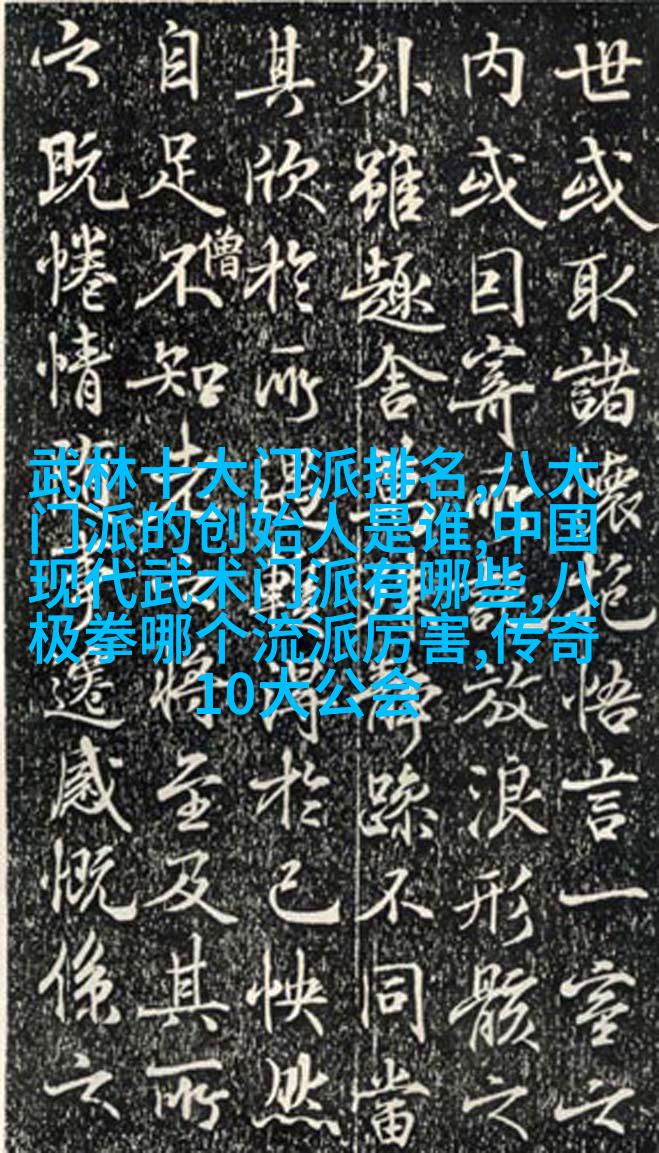 世或取諸懷抱悟言一室之
內或因寄所託放浪形骸之
外雖趣舍萬殊靜躁不同當
其欣於所遇暫得於己怏然
自足不知老之將至及其所
僧
之既惓情隨事遷感慨係之
武林十大门派排名,八大
门派的创始人是谁,中国
现代武术门派有哪些,八
极拳哪个流派厉害,传奇
10大公会